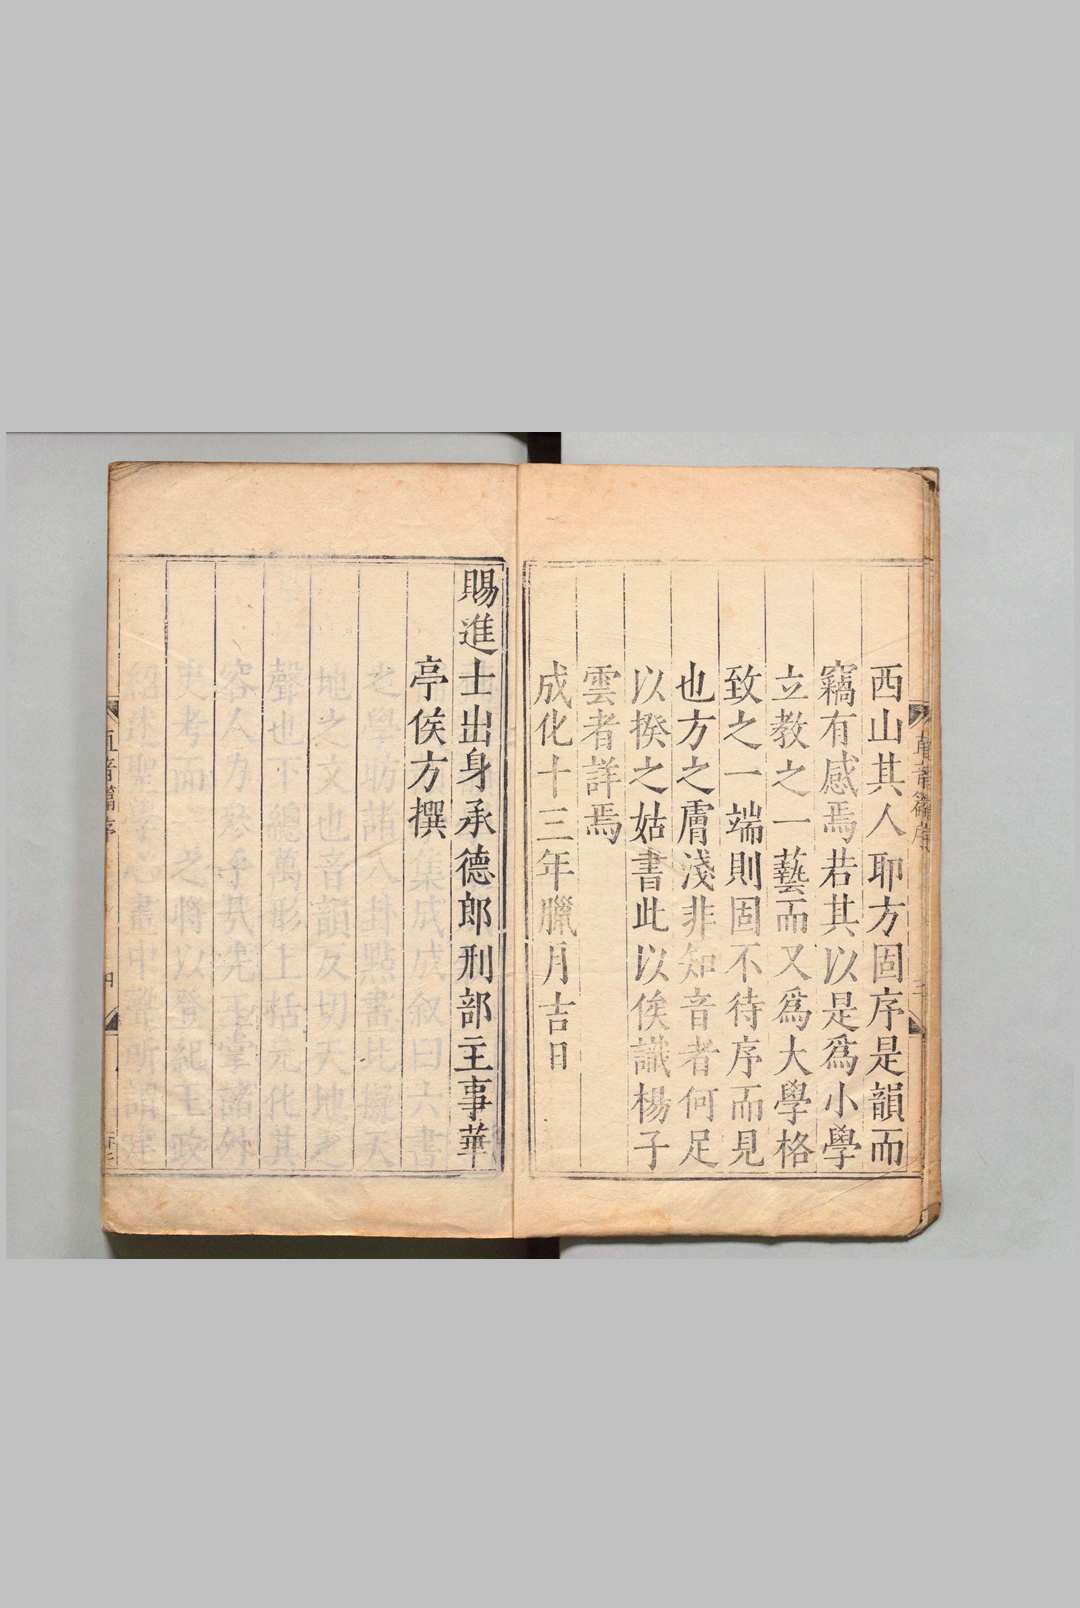 西山其人耶方固序是韻而
竊有感焉若其以是爲小學
立教之一藝而又爲大學格
致之一端則固不待序而見
也方之膚淺非知音者何足
以揆之姑書此以俟識楊子
雲者詳焉
成化十三年臘月吉日
賜進士出身承德郎刑部主事華
亭侯方撰